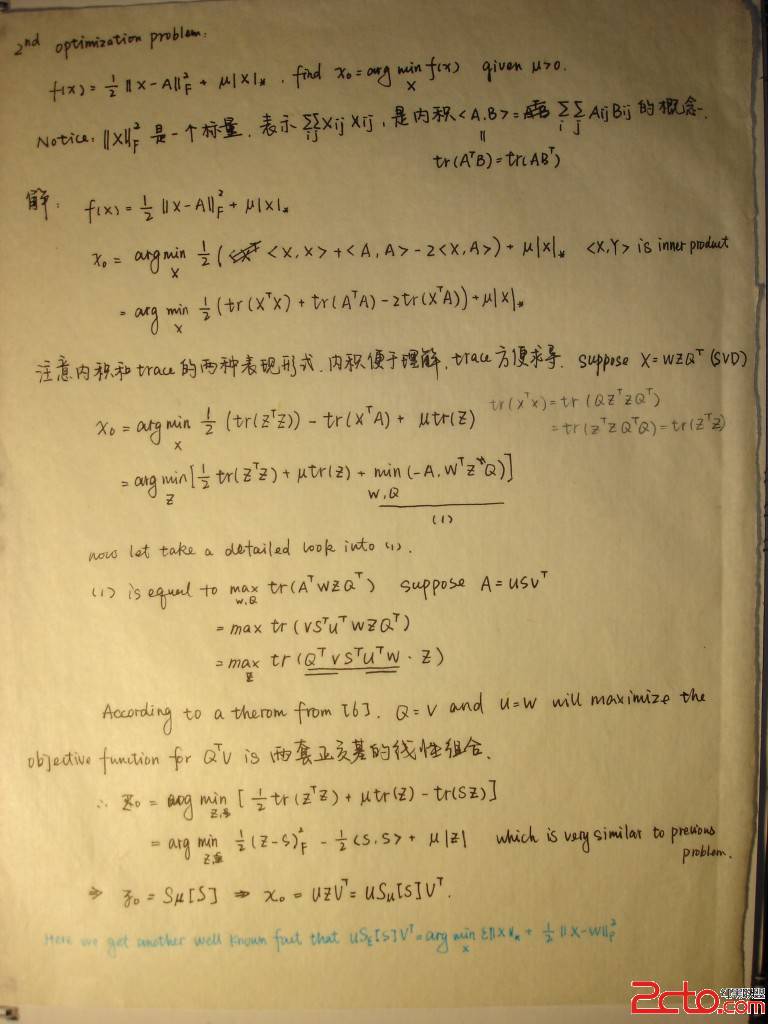 2nd optimization problem:
f(x) = 1/2 ||X-A||_F^2 + μ|X|_* . find x₀ = arg min_X f(x) given μ>0.
Notice: ||X||_F^2 是一个标量. 表示 Σ_i Σ_j Xij Xij , 是内积 <A,B> = Σ_i Σ_j Aij Bij 的概念.
||
tr(A^T B) = tr(AB^T)
解: f(x) = 1/2 ||X-A||_F^2 + μ|X|_*
x₀ = arg min_X 1/2 ( <X,X> + <A,A> - 2<X,A>) + μ|X|_* <X,Y> is inner product
= arg min_X 1/2 (tr(X^T X) + tr(A^T A) - 2tr(X^T A)) + μ|X|_*
注意内积和trace的两种表现形式. 内积便于理解, trace方便求导. suppose X = WZQ^T (SVD)
x₀ = arg min_X 1/2 (tr(Z^T Z)) - tr(X^T A) + μtr(Z) tr(X^T X) = tr(QZ^T ZQ^T)
= tr(Z^T Z Q^T Q) = tr(Z^T Z)
= arg min_Z [1/2 tr(Z^T Z) + μtr(Z) + min_{W,Q} (-A, W^T Z Q)]
(1)
now let take a detailed look into (1).
(1) is equal to max_{W,Q} tr(A^T WZQ^T) suppose A = USV^T
= max tr(VS^T U^T WZQ^T)
= max_Z tr(Q^T VS^T U^T W · Z)
According to a therom from [6]. Q=V and U=W will maximize the
objective function for Q^T V is 两套正交基的线性组合.
∴ Z₀ = arg min_Z [1/2 tr(Z^T Z) + μtr(Z) - tr(SZ)]
= arg min_Z 1/2 (Z-S)_F^2 - 1/2 <S,S> + μ|Z| which is very similar to previous
problem.
⇒ z₀ = Sμ[S] ⇒ x₀ = UZV^T = USμ[S]V^T.
Here we get another well known fact that US_ε[S]V^T = arg min_X ε||X||_* + 1/2 ||X-W||_F^2
2cto.com